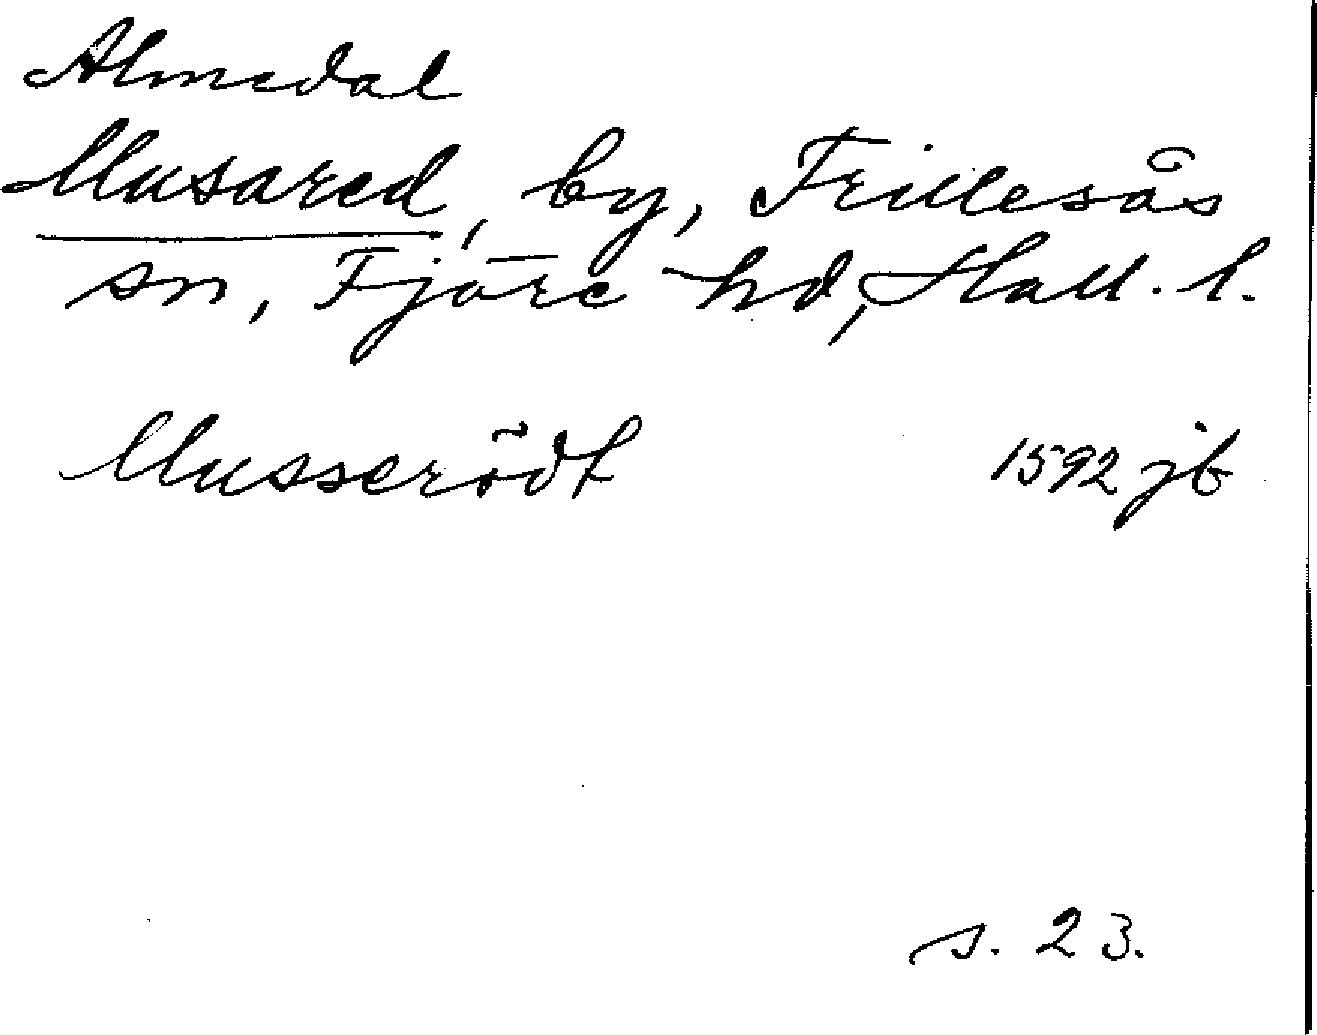 Almedal
Musared, by, Frillesås
sn, Fjäre hd, Hall. l.
Musserödt 1592 jb
s. 23.